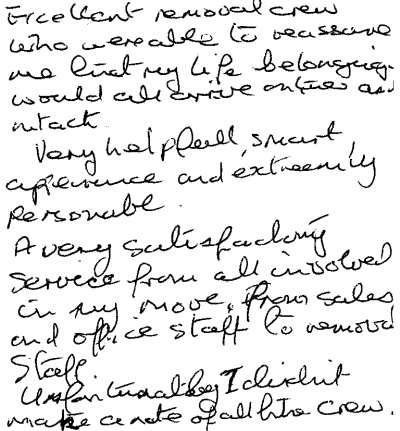 Excellent removal crew
who were able to reassure
me that my life belongings
would all arrive on time and
intact.
Very helpfull, smart,
apperence and extreemly
Personable.
A very satisfactory
Service from all involved
in my move. From sales
and office staff to removal
Staff.
Unfortunatley I didn't
make a note of all the crew.